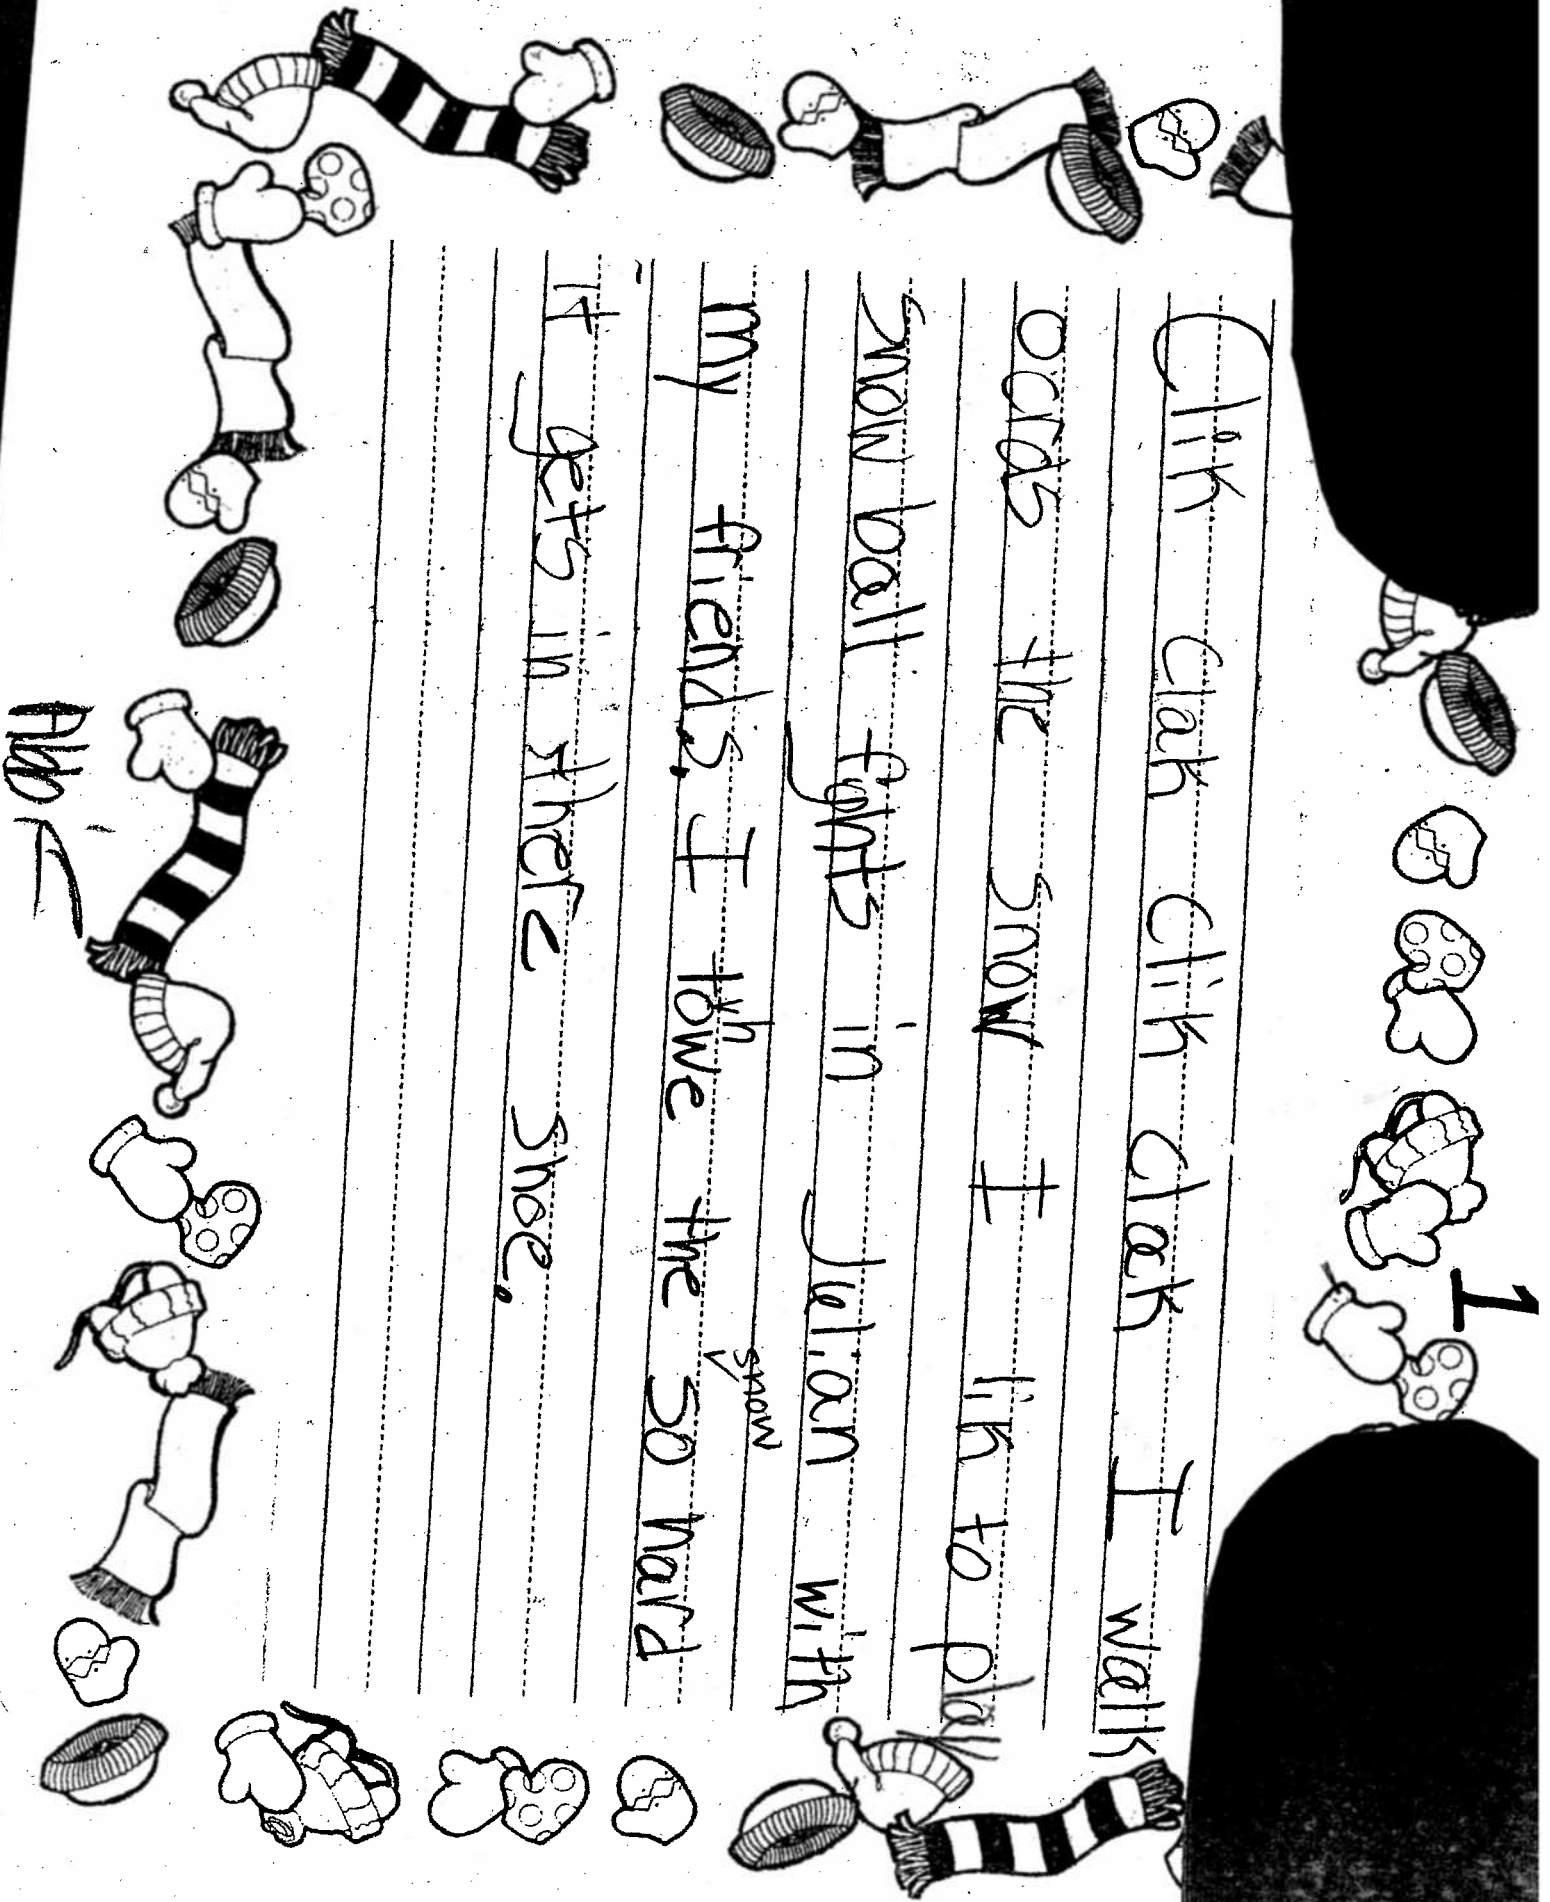 1
Clik clak clik clak I walk
ocrds the snow I lik to play
snow ball fights in Jelian with
my friends. I thowe the snow so hard
it gets in there shoe.